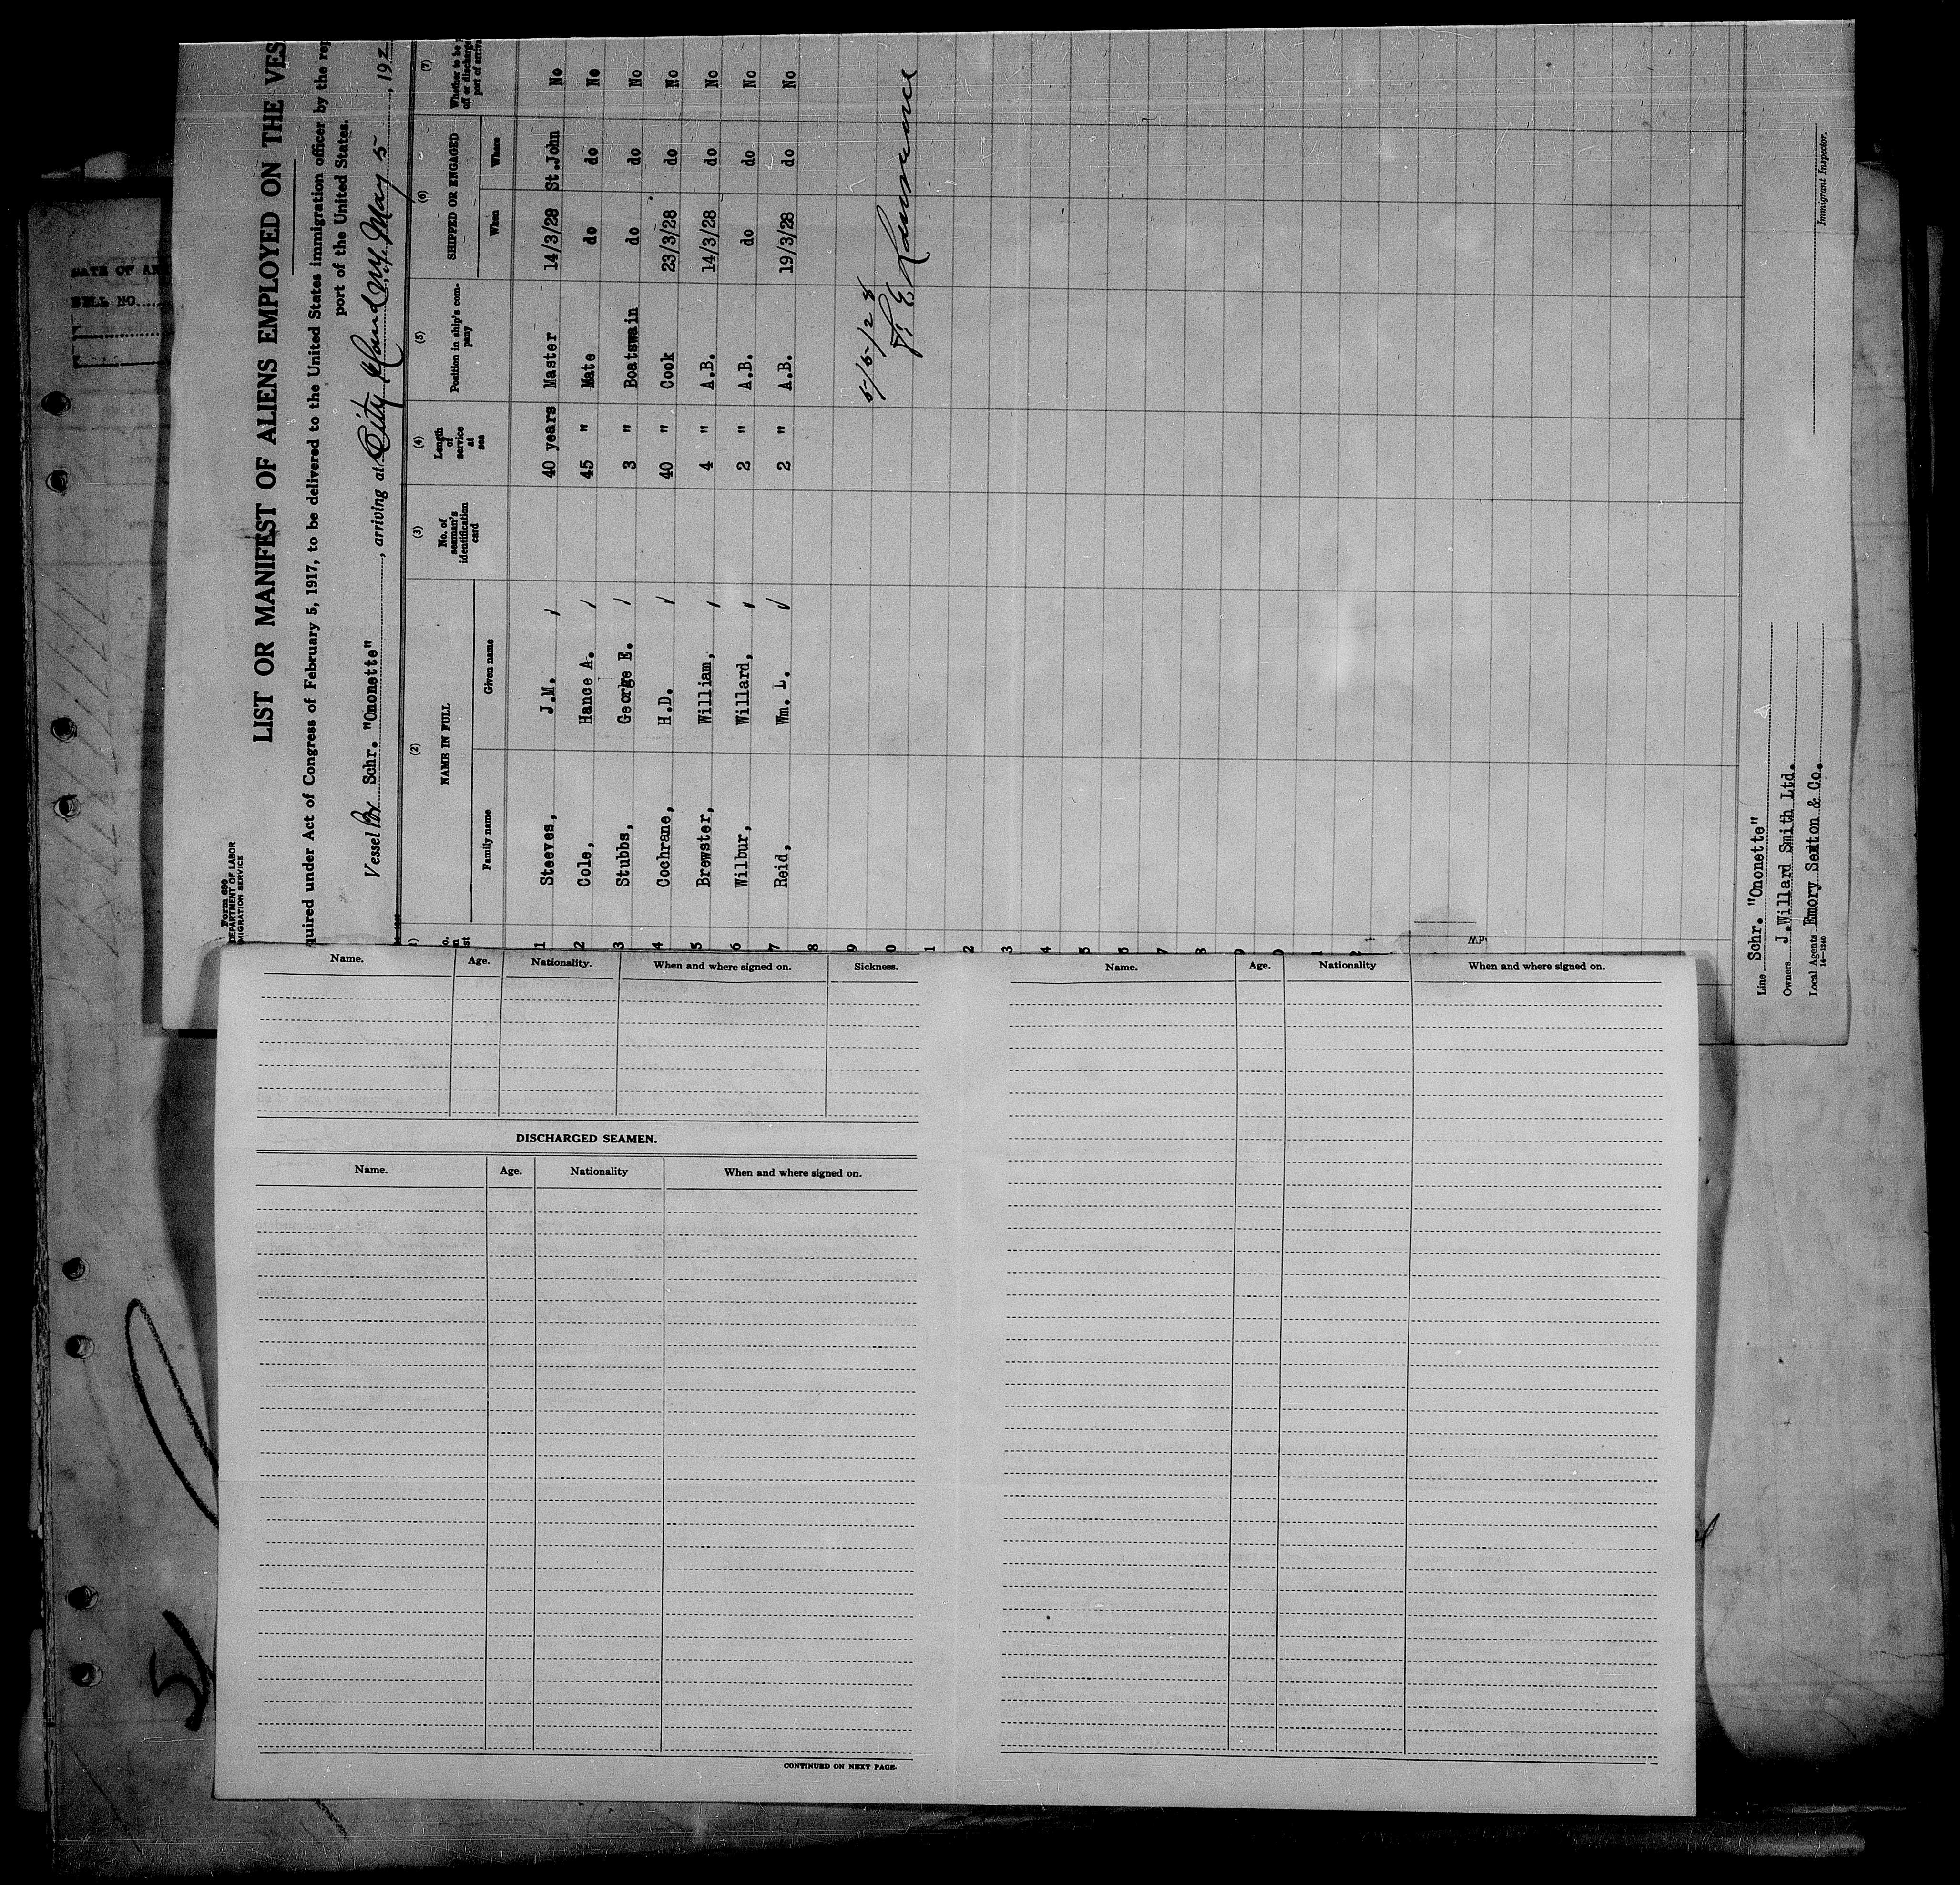 Form 680
DEPARTMENT OF LABOR
MIGRATION SERVICE
LIST OR MANIFEST OF ALIENS EMPLOYED ON THE VES
quired under Act of Congress of February 5, 1917, to be delivered to the United States immigration officer by the rep
port of the United States.
Vessel Br Schr. "Ononette", arriving at City Island NY, May 5, 192
(2) (3) (4) (5) (6) (7)
NAME IN FULL No. of seaman's identification card Length of service at sea Position in ship's company SHIPPED OR ENGAGED Whether to be off or discharge port of arriva
Family name Given name When Where
1 Steeves, J.M. 40 years Master 14/3/28 St.John No
2 Cole, Hance A. 45 " Mate do do No
3 Stubbs, George E. 3 " Boatswain do do No
4 Cochrane, H.D. 40 " Cook 23/3/28 do No
5 Brewster, William, 4 " A.B. 14/3/28 do No
6 Wilbur, Willard, 2 " A.B. do do No
7 Reid, Wm. L. 2 " A.B. 19/3/28 do No
8
9 5/5/28
0
1
2
3
4
5
6
7
8
9
0
1
2
Line Schr. "Ononette"
Owners J.Willard Smith Ltd.
Local Agents Emory Sexton & Co.
14—1240
Immigrant Inspector.
DATE OF AR
BELL NO.
Name. Age. Nationality. When and where signed on. Sickness.
DISCHARGED SEAMEN.
Name. Age. Nationality When and where signed on.
CONTINUED ON NEXT PAGE.
Name. Age. Nationality When and where signed on.
5